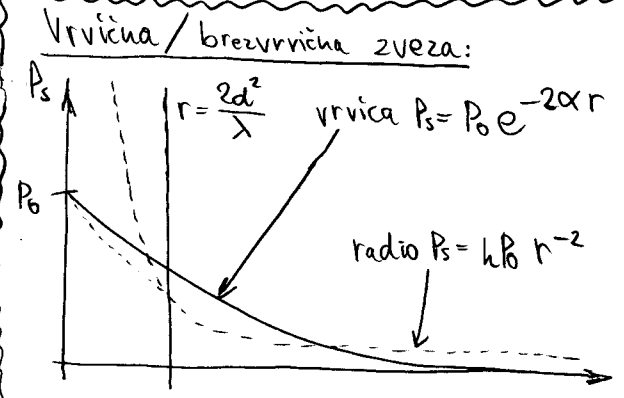 Vrvična / brezvrvična zveza:
Ps
r = 2d²/λ
vrvica Ps = P₀ e^-2αr
P₀
radio Ps = hP₀ r^-2